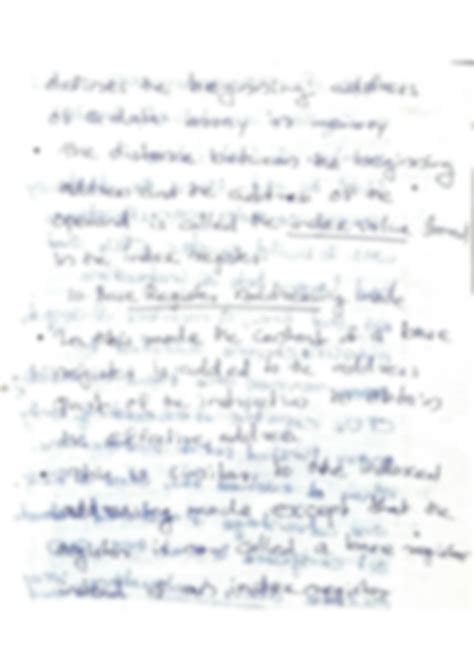 defines the beginning address
of a data array in memory
• The distance between the beginning
address and the address of the
operand is called the index value stored
in the index register
Base Register Addressing mode
• In this mode the content of a base
register is added to the address
part of the instruction to obtain
the effective address
• This is similar to the indexed
addressing mode except that the
register is now called a base register
instead of an index register